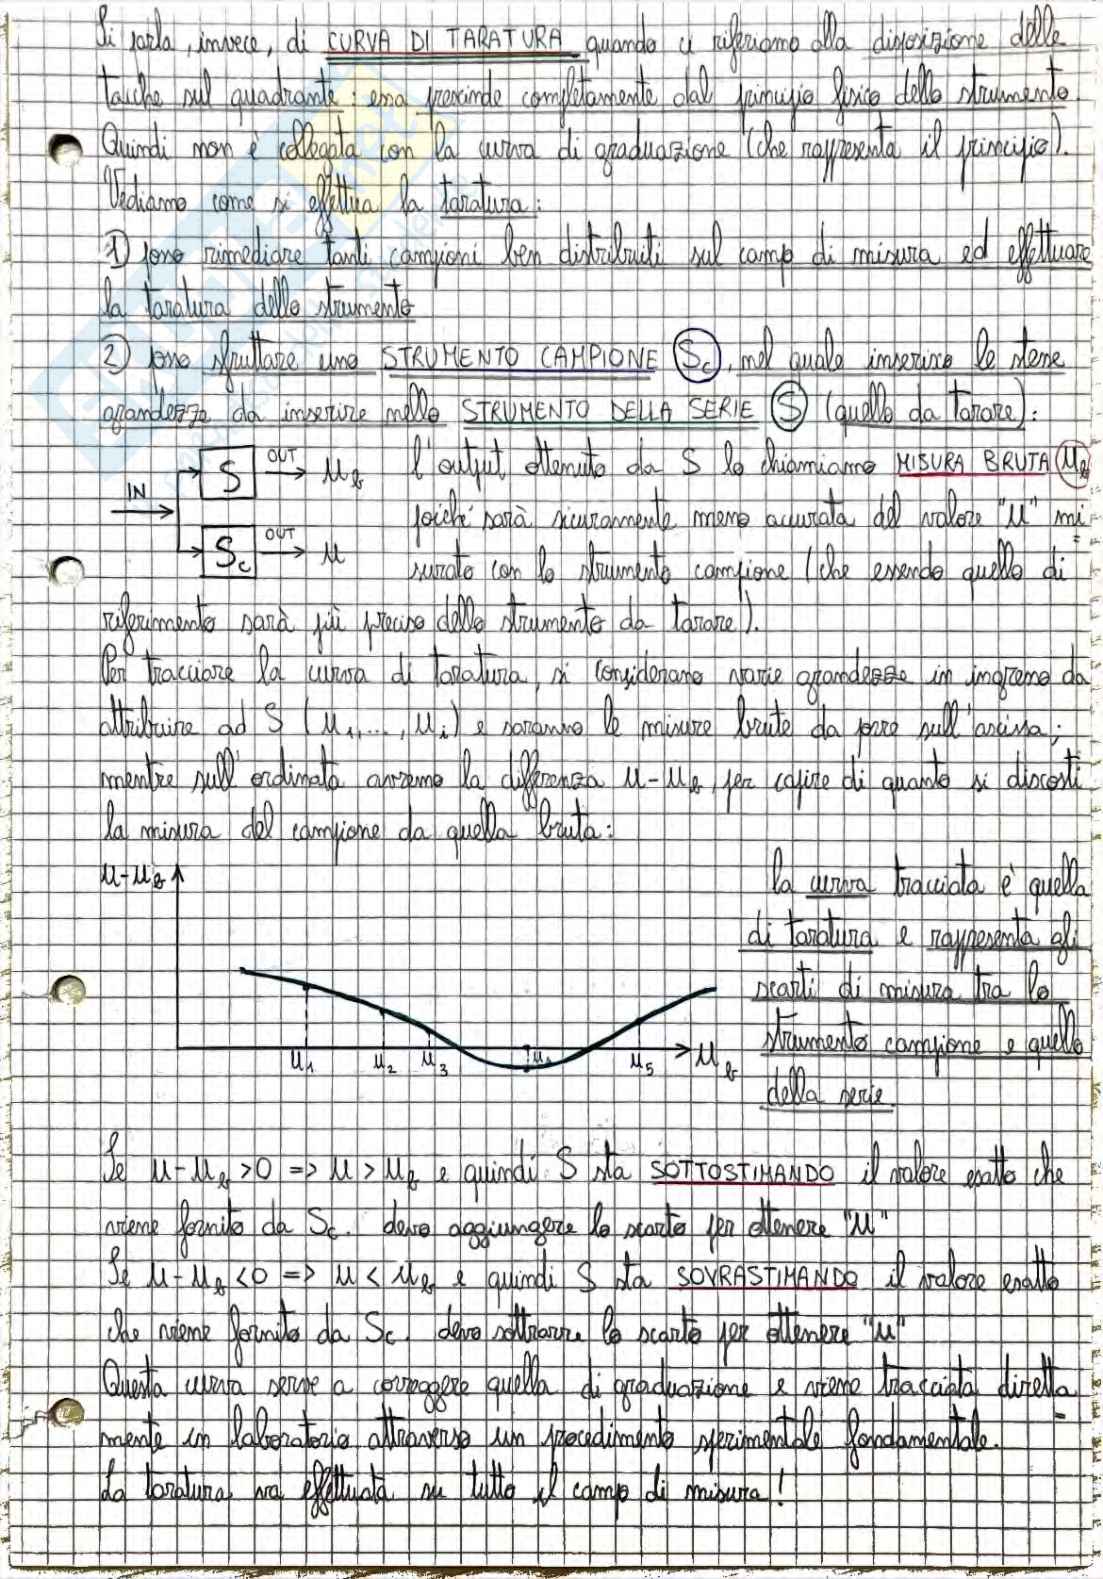 Si parla, invece, di CURVA DI TARATURA quando ci riferiamo alla disposizione delle
tacche sul quadrante: essa prescinde completamente dal principio fisico dello strumento.
Quindi non è collegata con la curva di graduazione (che rappresenta il principio).
Vediamo come si effettua la taratura:
1) posso rimediare tanti campioni ben distribuiti sul campo di misura ed effettuare
la taratura dello strumento
2) posso sfruttare uno STRUMENTO CAMPIONE (Sc), nel quale inserisco le stesse
grandezze da inserire nello STRUMENTO DELLA SERIE (S) (quello da tarare):
IN
S OUT → Mb
Sc OUT → M
l'output ottenuto da S lo chiamiamo MISURA BRUTA Mb
poiché sarà sicuramente meno accurata del valore "M" mi
surato con lo strumento campione (che essendo quello di
riferimento sarà più preciso dello strumento da tarare).
Per tracciare la curva di taratura, si considerano varie grandezze in ingresso da
attribuire ad S (M1,..., Mi) e saranno le misure brute da porre sull'ascissa;
mentre sull'ordinata avremo la differenza M-Mb, per capire di quanto si discosti
la misura del campione da quella bruta:
M-Mb
M1 M2 M3 M4 M5 Mb
la curva tracciata è quella
di taratura e rappresenta gli
scarti di misura tra lo
strumento campione e quello
della serie.
Se M-Mb>0 => M>Mb e quindi S sta SOTTOSTIMANDO il valore esatto che
viene fornito da Sc. devo aggiungere lo scarto per ottenere "M"
Se M-Mb<0 => M<Mb e quindi S sta SOVRASTIMANDO il valore esatto
che viene fornito da Sc. devo sottrarre lo scarto per ottenere "M"
Questa curva serve a correggere quella di graduazione e viene tracciata diretta
mente in laboratorio attraverso un procedimento sperimentale fondamentale.
La taratura va effettuata su tutto il campo di misura!